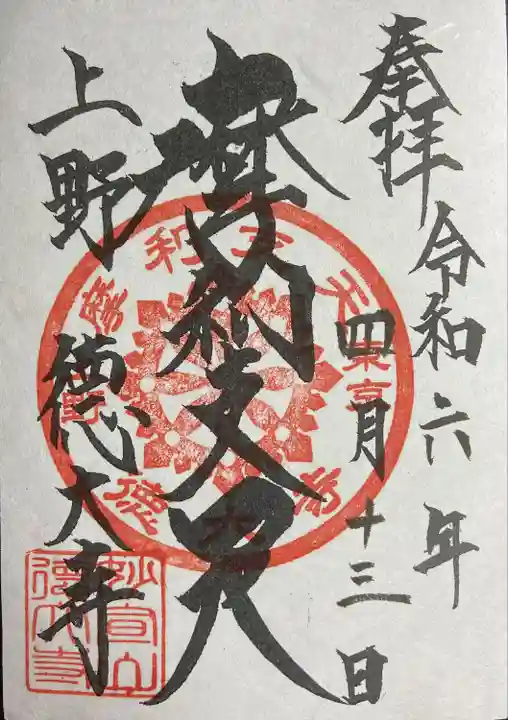 奉拝 令和六年
四月十三日
摩利支天
上野 徳大寺
妙宣山
徳大寺